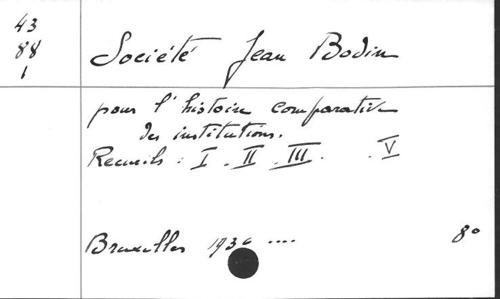 43
88
1
Société Jean Bodin
pour l'histoire comparative
des institutions.
Recueils : I . II . III . . V
Bruxelles 1936 .... 8°